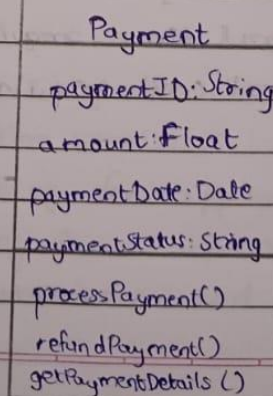 Payment
paymentID: String
amount: Float
paymentDate: Date
paymentstatus: String
processPayment()
refundPayment()
getPaymentDetails ()